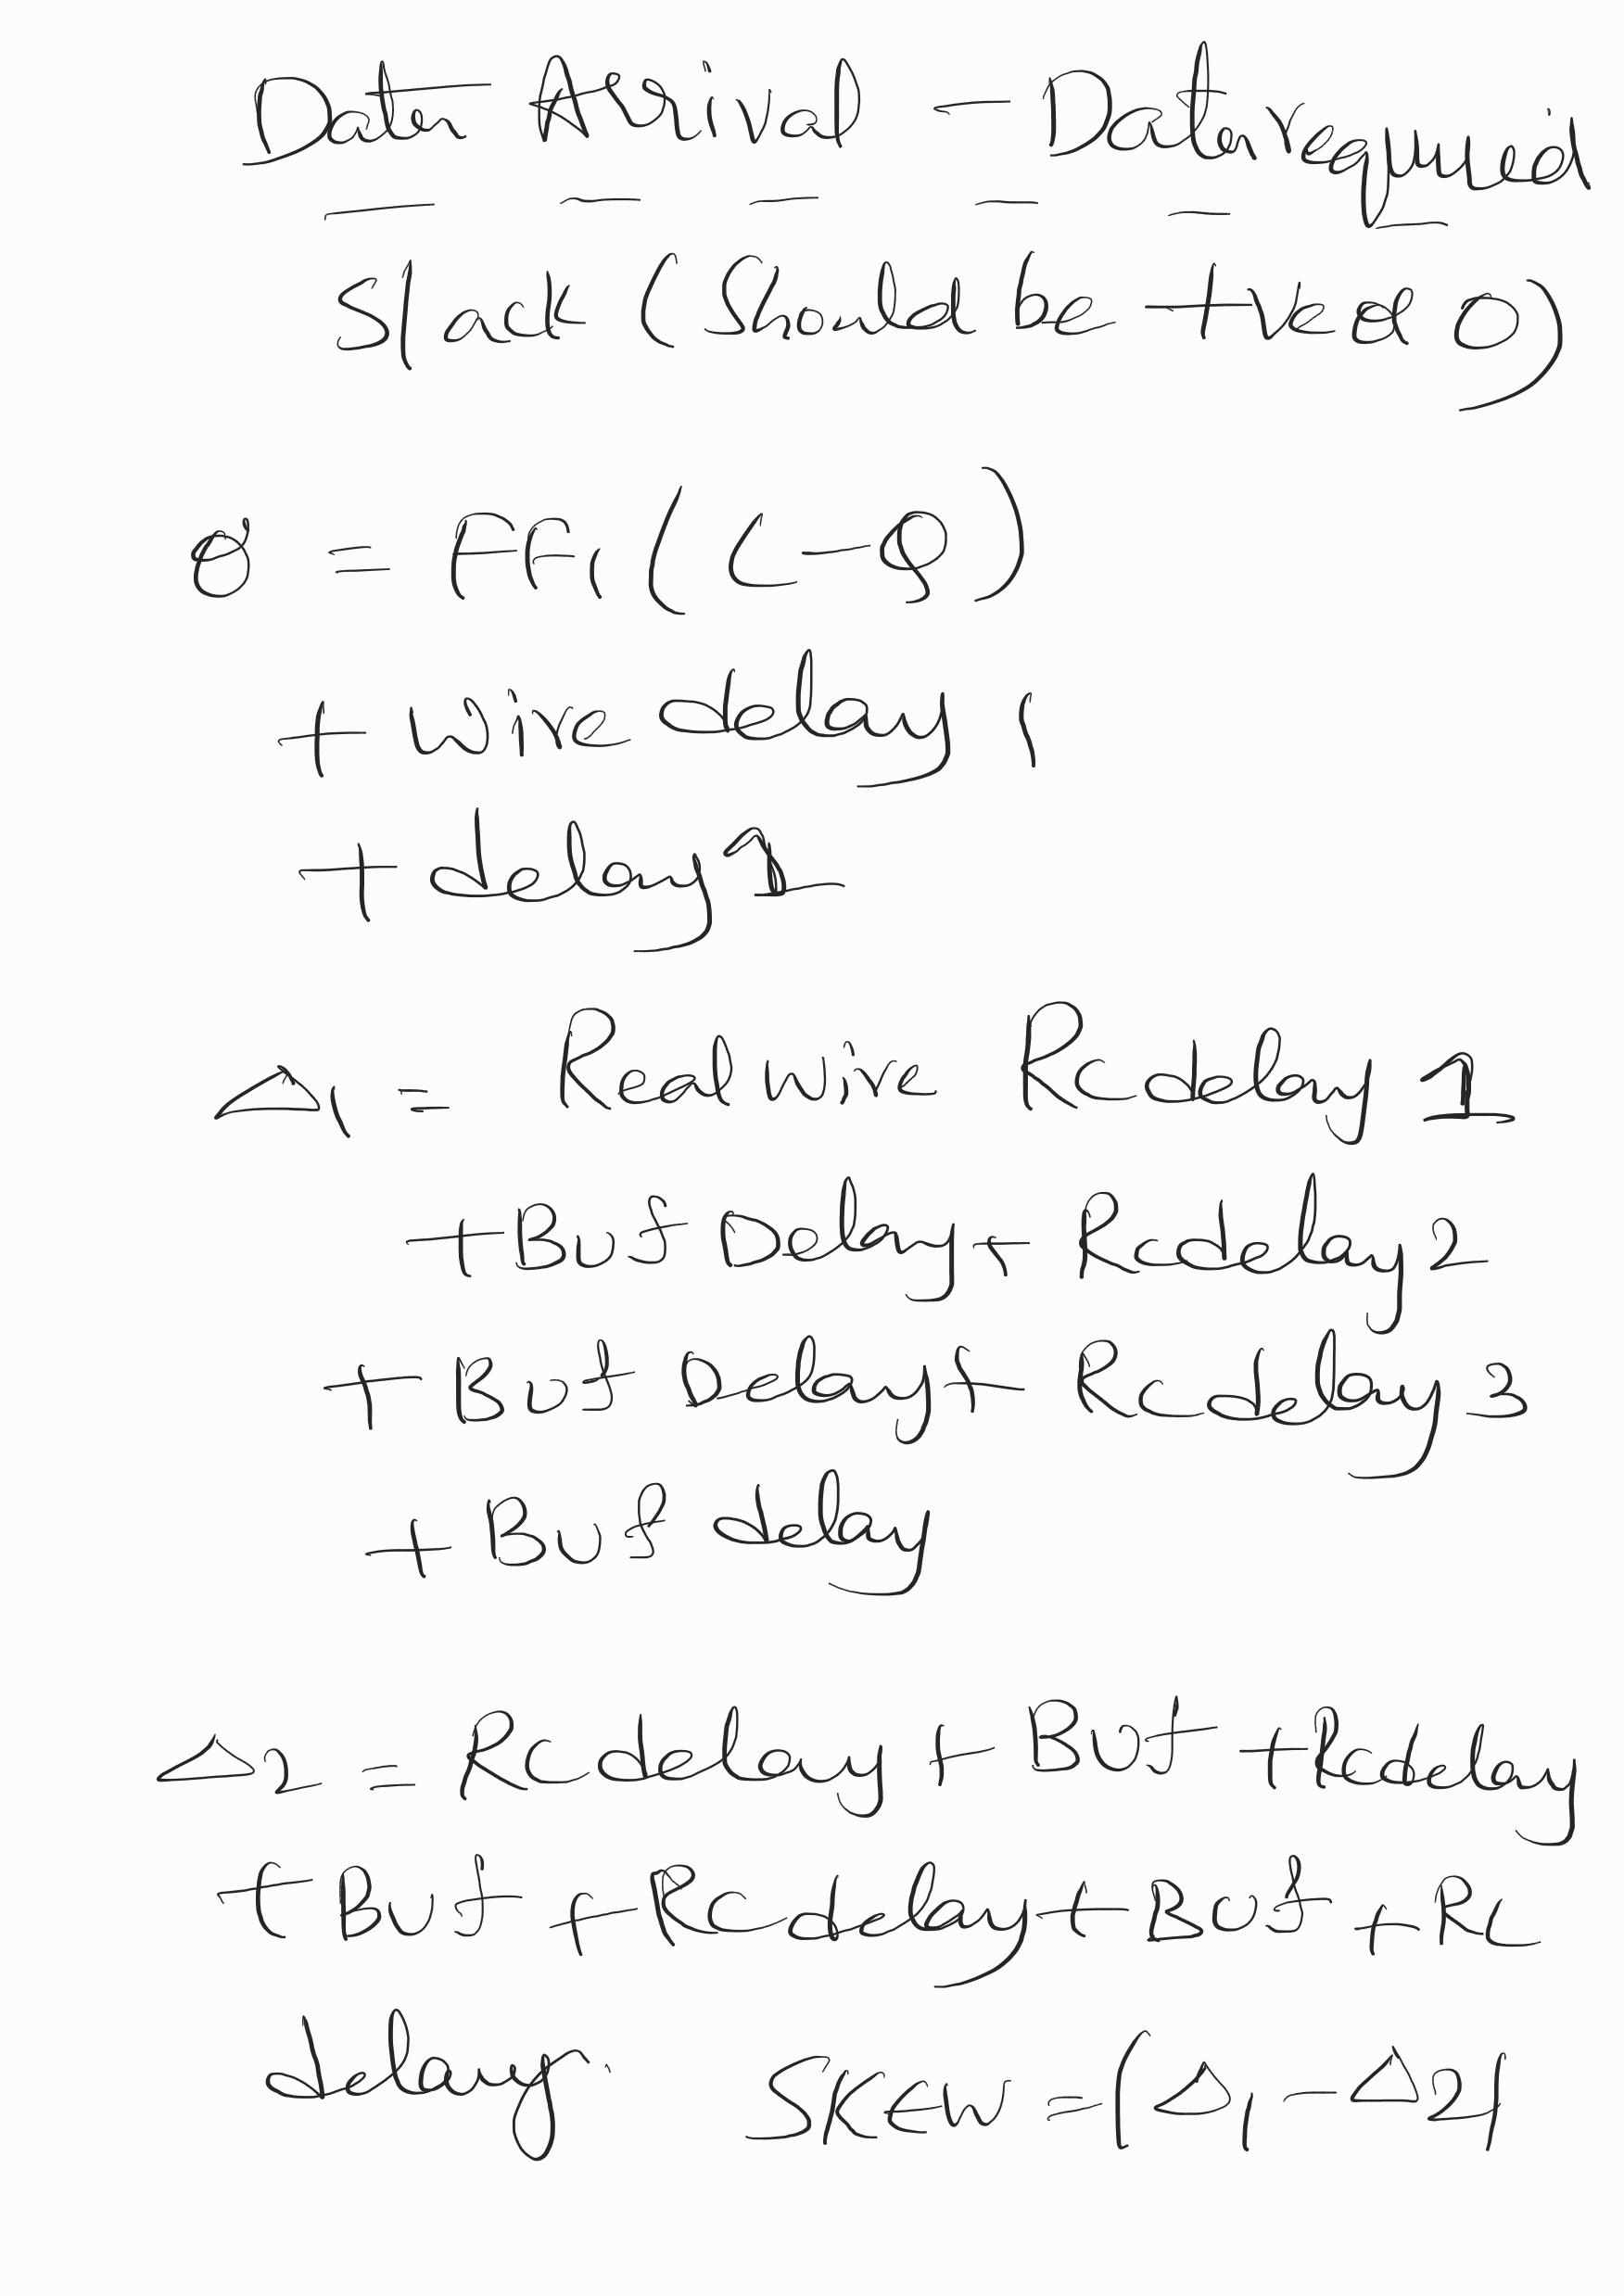 Data Arrival - Data required
Slack (Should be +ve or 0)
θ = FF1 (C-Q)
+ wire delay 1
+ delay 1
Δ1 = Real wire Rc delay 1
+ Buf Delay + Rc delay 2
+ Buf Delay + Rc delay 3
+ Buf delay
Δ2 = Rc delay + Buf + Rc delay
+ Buf + Rc delay + Buf + Rc
delay. SKEW = |Δ1 - Δ2|